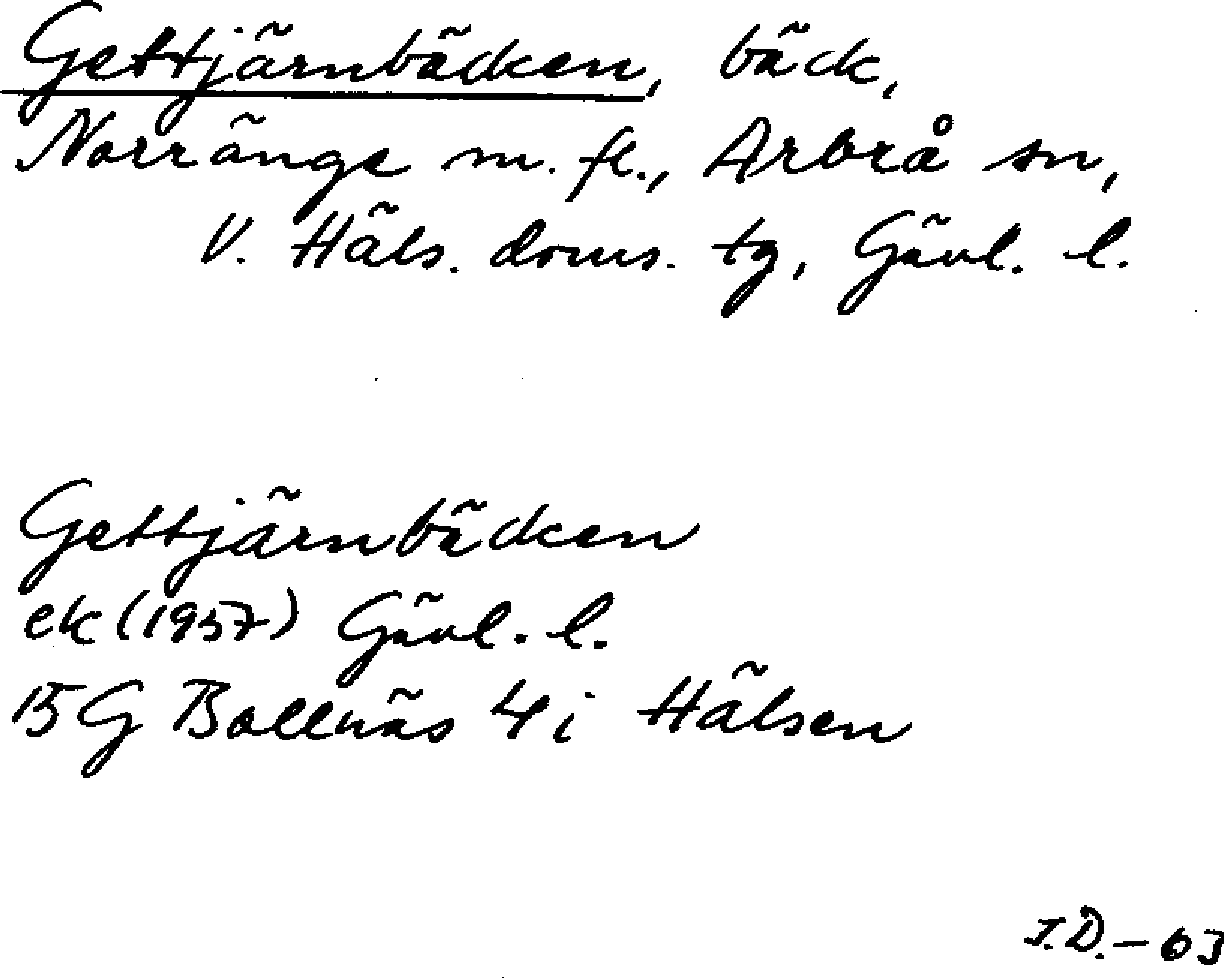 Gettjärnbäcken, bäck,
Norränge m. fl., Arbrå sn,
V. Häls. doms. tg, Gävl. l.
Gettjärnbäcken
ek (1957) Gävl. l.
15G Bollnäs 4i Hälsen
I.D. – 63